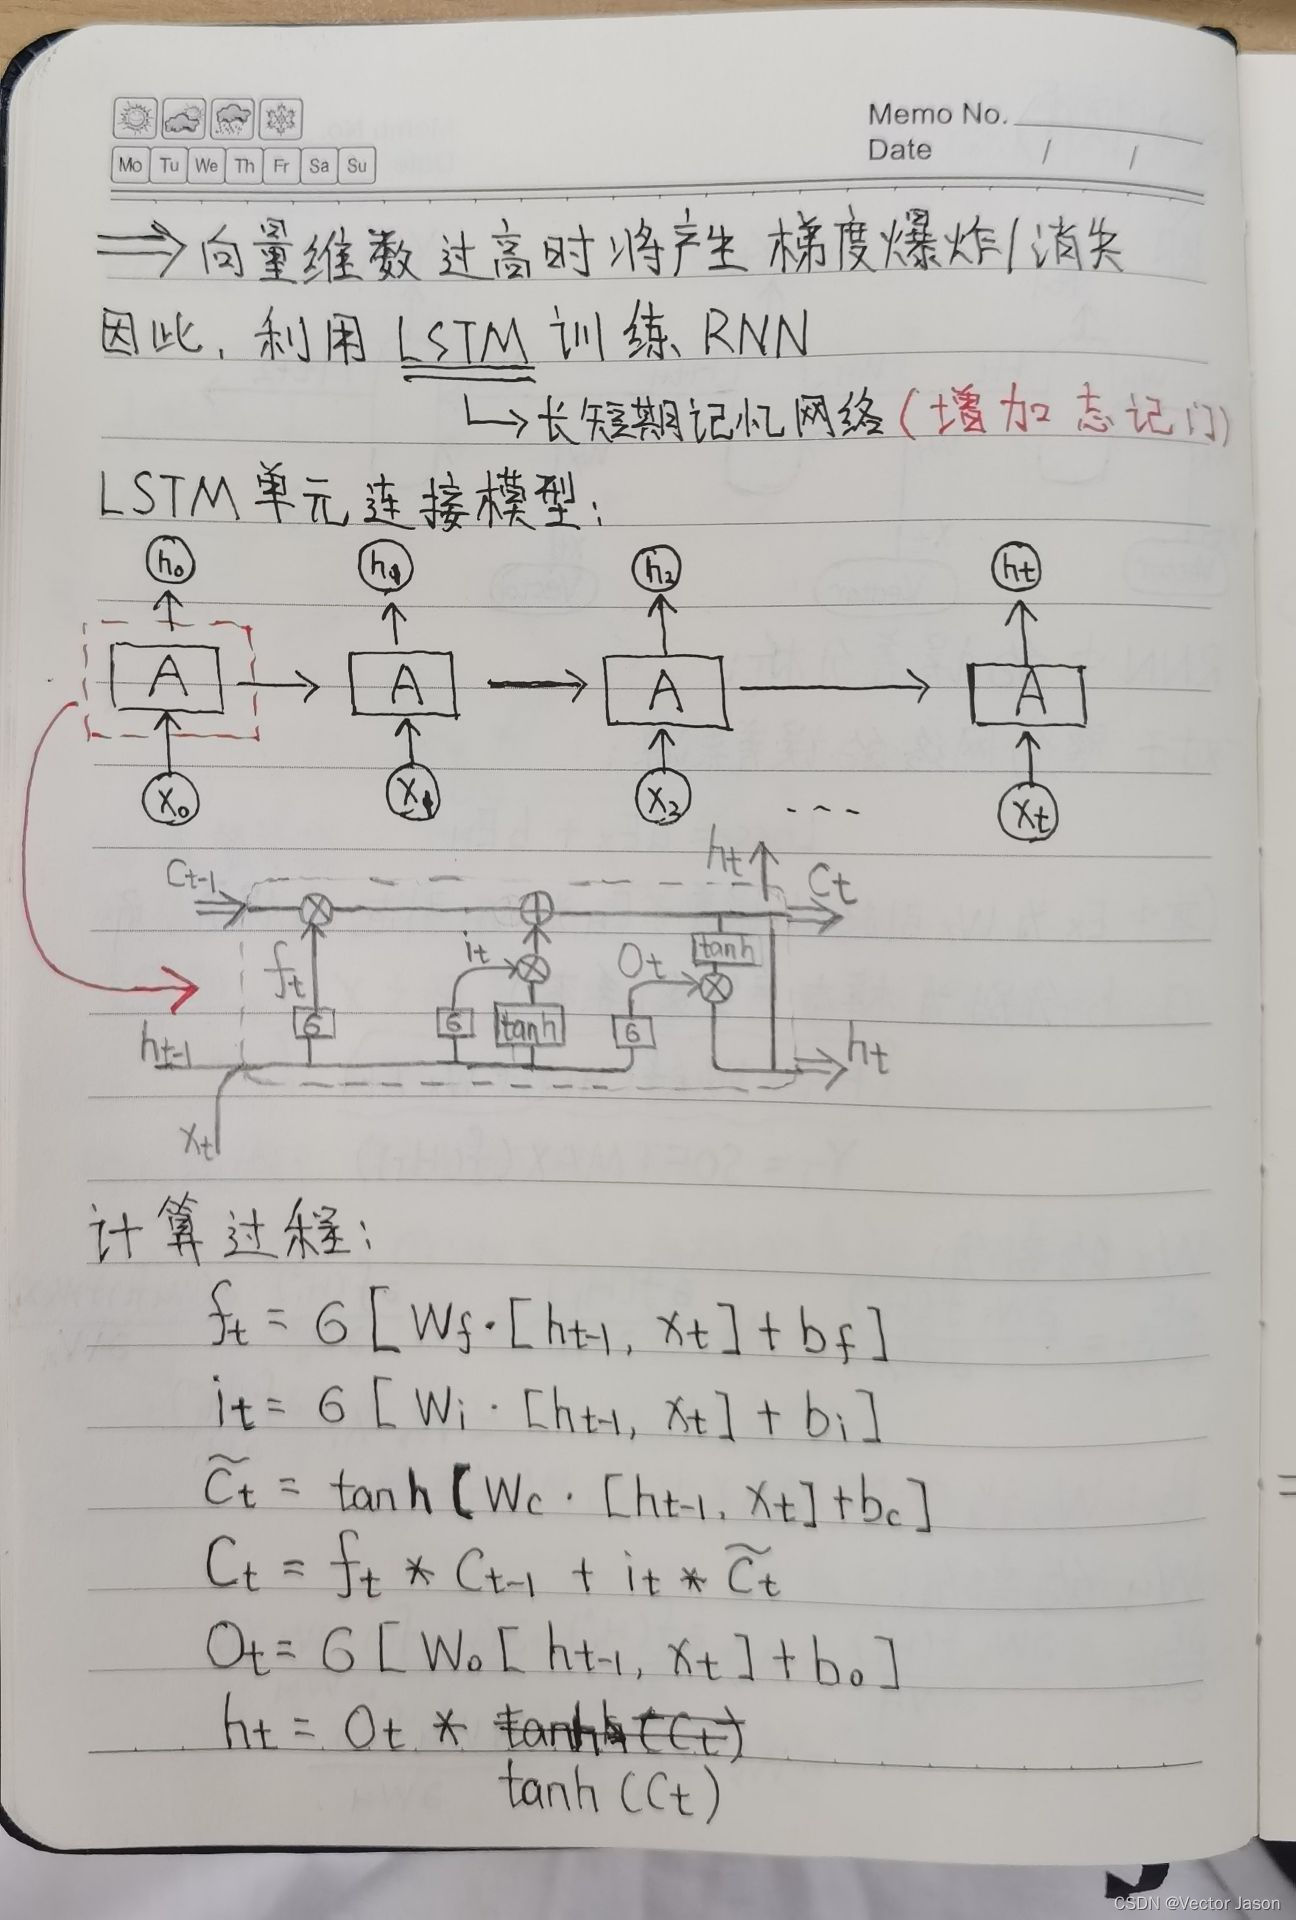 Memo No.
Mo Tu We Th Fr Sa Su
Date / /
⇒ 向量维数过高时将产生 梯度爆炸/消失
因此, 利用 LSTM 训练 RNN
↳ 长短期记忆网络 (增加忘记门)
LSTM单元连接模型:
h₀ h₁ h₂ ht
A → A → A → A
x₀ x₁ x₂ --- xt
ht
Ct-1 Ct
it
ft Ot tanh
6 6 tanh 6
ht-1 ht
xt
计算过程:
ft = 6 [ Wf · [ht-1, xt] + bf ]
it = 6 [ Wi · [ht-1, xt] + bi ]
C̃t = tanh [ Wc · [ht-1, xt] + bc ]
Ct = ft * Ct-1 + it * C̃t
Ot = 6 [ Wo [ ht-1, xt ] + bo ]
ht = Ot * tanh (Ct)
tanh (Ct)
CSDN @Vector Jason